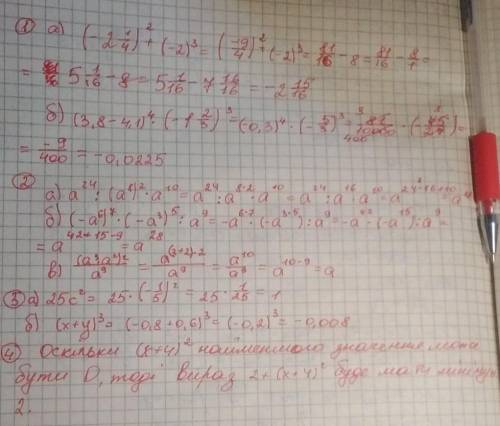 ① а) (-2 1/4)² + (-2)³ = (-9/4)² + (-2)³ = 81/16 - 8 = 81/16 - 8/1 =
= 5 1/16 - 8 = 5 1/16 - 7 16/16 = -2 15/16
б) (3,8-4,1)⁴ · (-1 2/3)³ = (0,3)⁴ · (-5/3)³ = 81/10000 · (-
= -9/400 = -0,0225
② а) a²⁴ : (a⁸)² · a¹⁰ = a²⁴ : a⁸·² · a¹⁰ = a²⁴ : a¹⁶ · a¹⁰ =
б) (-a⁶)⁷ · (-a³)⁵ : a⁹ = -a⁶·⁷ · (-a³·⁵) : a⁹ = -a⁴² · (-a¹⁵) : a⁹ =
= a⁴²⁺¹⁵⁻⁹ = a²⁸
в) (a³a²)²/a⁹ = a⁽³⁺²⁾·²/a⁹ = a¹⁰/a⁹ = a¹⁰⁻⁹ = a
③ а) 25c² = 25 · (-1/5)² = 25 · 1/25 = 1
б) (x+y)³ = (-0,8+0,6)³ = (-0,2)³ = -0,008
④ Оскільки найменшого значення може
бути 0, тоді вираз буде мати мінімум
2.